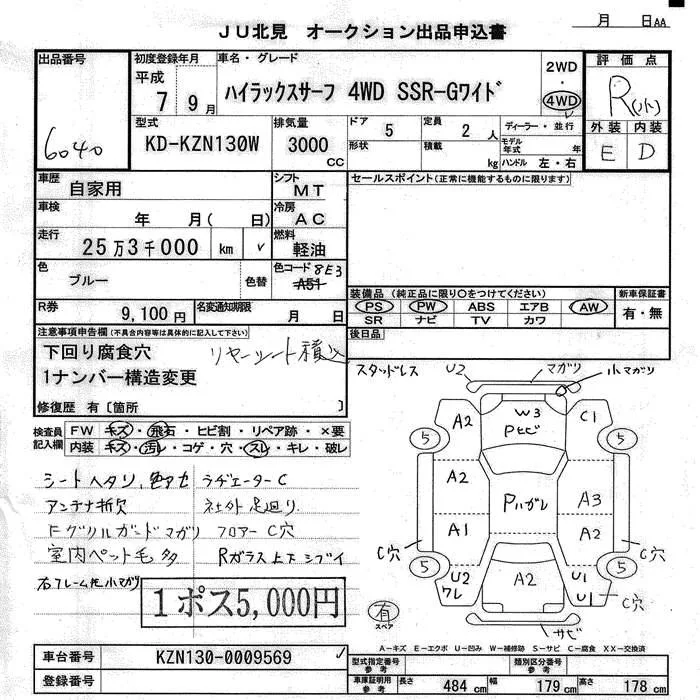 月 日AA
JU北見 オークション出品申込書
出品番号 6040
初度登録年月 平成 7 9月
車名・グレード ハイラックスサーフ 4WD SSR-Gワイド
2WD・4WD
評価点 R(小ト)
型式 KD-KZN130W
排気量 3000 CC
ドア 5
定員 2人
ディーラー・並行
外装 内装
E D
形状
積載 kg
モデル年式 年
ハンドル 左・右
車歴 自家用
シフト MT
セールスポイント(正常に機能するものに限ります)
車検 年 月( 日)
冷房 AC
走行 25万3千000 km
燃料 軽油
色 ブルー 色替
色コード 8E3 A51
装備品(純正品に限り○をつけてください)
新車保証書
PS PW ABS エアB AW
有・無
SR ナビ TV カワ
R券 9,100円
名変通知期限 月 日
後日品
注意事項申告欄(不具合内容等は具体的に記入して下さい)
下回り腐食穴 リヤーシート積込
1ナンバー構造変更
修復歴 有〔箇所 〕
スタッドレス U2 マガリ 小マガリ
検査員記入欄
FW キズ・飛石・ヒビ割・リペア跡・×要
内装 キズ・汚レ・コゲ・穴・スレ・キレ・破レ
シートヘタリ、色アセ ラヂエーターC
アンテナ折欠 社外足廻り
Fグリルガードマガリ フロアーC穴
室内ペット毛多 Rガラス上下シブイ
右フレーム先小マガリ
1ポス5,000円
A2 W3 Pトビ C1
5 5
A2 Pハガレ A3
A1 A2
C穴 C穴
5 5
U2 ワレ A2 U1 U1 C穴
有 スペア
サビ
A-キズ E-エクボ U-凹み W-補修跡 S-サビ C-腐食 XX-交換済
車台番号 KZN130-0009569
登録番号
型式指定番号 参考
類別区分番号 参考
車庫証明用 参考 長さ 484cm 幅 179cm 高さ 178cm